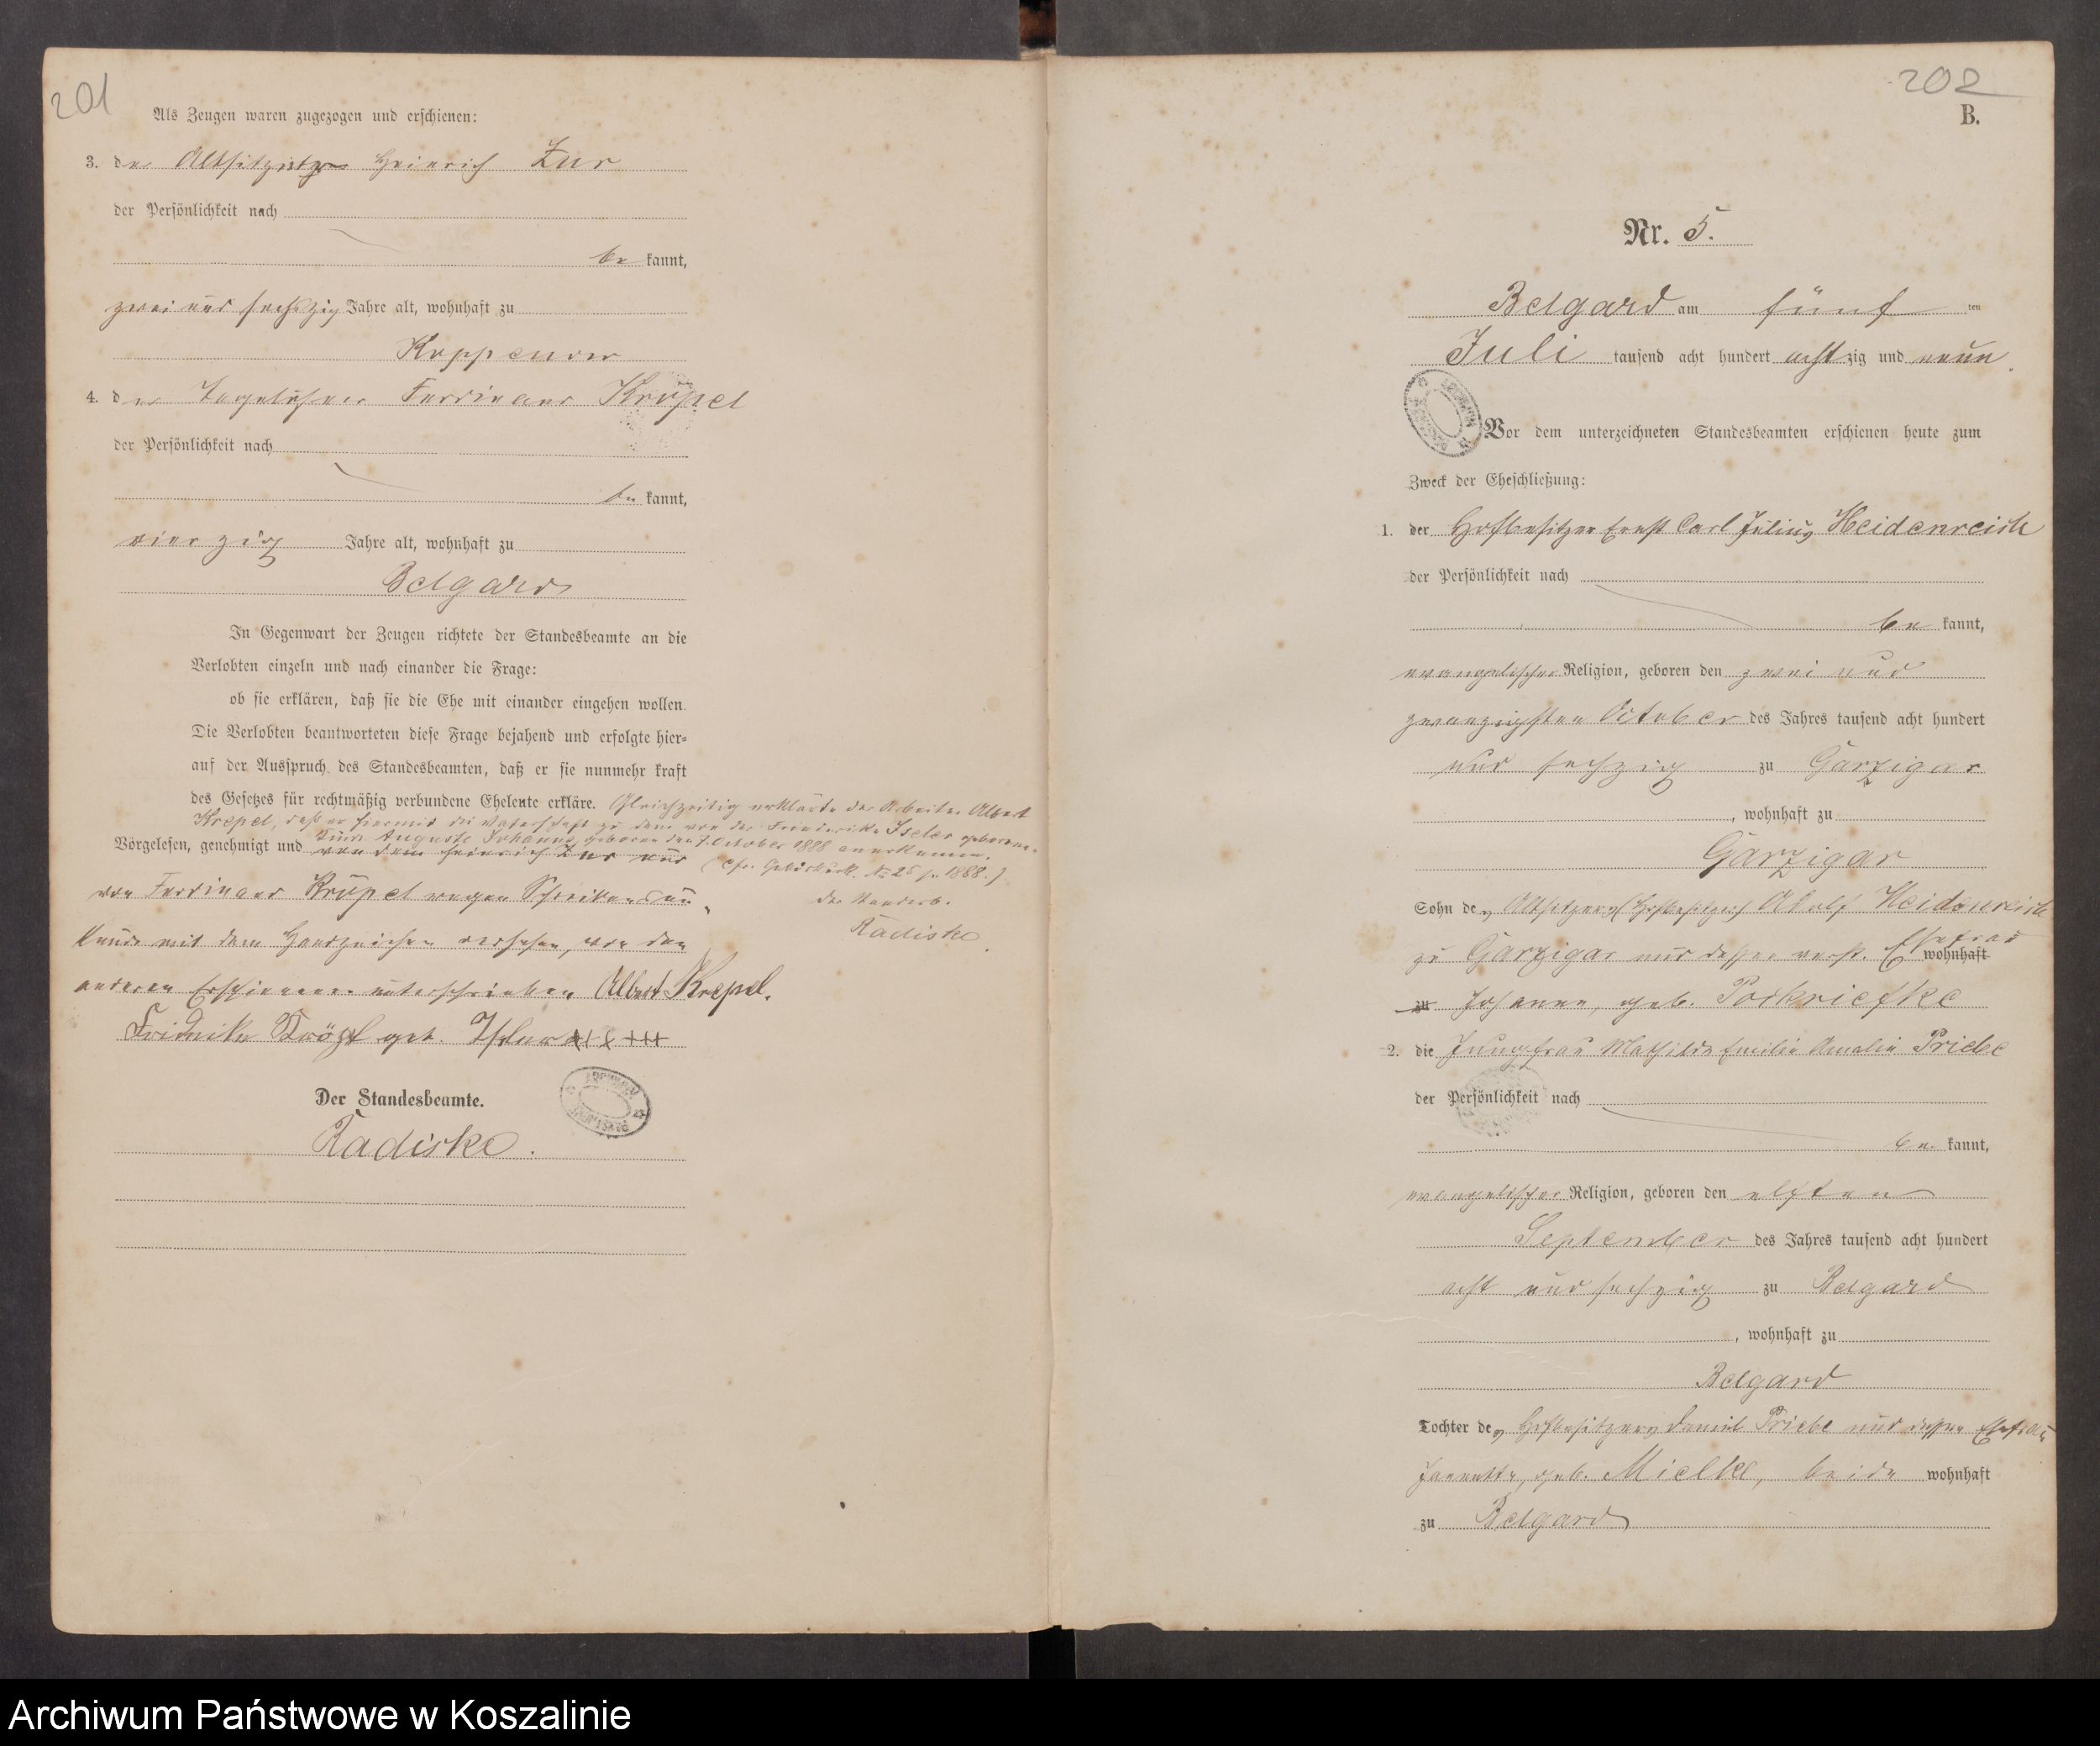 201
Als Zeugen waren zugezogen und erschienen:
3. der Altsitzer Heinrich Zur
der Persönlichkeit nach
be kannt,
zwei und sechszig Jahre alt, wohnhaft zu
Koppenow
4. der Tagelöhner Ferdinand Kröpel
der Persönlichkeit nach
be kannt,
vierzig Jahre alt, wohnhaft zu
Belgard
In Gegenwart der Zeugen richtete der Standesbeamte an die
Verlobten einzeln und nach einander die Frage:
ob sie erklären, daß sie die Ehe mit einander eingehen wollen.
Die Verlobten beantworteten diese Frage bejahend und erfolgte hier-
auf der Ausspruch des Standesbeamten, daß er sie nunmehr kraft
des Gesetzes für rechtmäßig verbundene Eheleute erkläre. Gleichzeitig erklärte der Arbeiter Albert
Krepel, daß er hiermit die Vaterschaft zu dem von der Friederike Iseler geborenen
Kinde Auguste Johanne, geboren den 7. October 1888 anerkenne.
Vorgelesen, genehmigt und von dem Heinrich Zur und
(cfr. Geb. No 25 pr. 1888.)
von Ferdinand Kröpel wegen Schreibensun-
der Standesb.
Radiske
kunde mit dem Handzeichen versehen, von den
anderen Erschienenen unterschrieben Albert Krepel.
Fridrike Kröpl geb. Isler +++
Der Standesbeamte.
Radiske.
202
B.
Nr. 5.
Belgard am fünf ten
Juli tausend acht hundert acht zig und neun.
Vor dem unterzeichneten Standesbeamten erschienen heute zum
Zweck der Eheschließung:
1. der Hofbesitzer Ernst Carl Julius Heidenreich
der Persönlichkeit nach
be kannt,
evangelischer Religion, geboren den zwei und
zwanzigsten October des Jahres tausend acht hundert
und sechzig zu Garzigar
, wohnhaft zu
Garzigar
Sohn des Altsitzers Adolf Heidenreich
zu Garzigar und dessen verst. Ehefrau wohnhaft
zu Johanne, geb.
2. die Jungfrau Mathilde Emilie Amalie Priebe
der Persönlichkeit nach
be kannt,
evangelischer Religion, geboren den elften
September des Jahres tausend acht hundert
acht und sechzig zu Belgard
, wohnhaft zu
Belgard
Tochter des Hofbesitzers Daniel Priebe und dessen Ehefrau
Jannette, geb. Mielke, beide wohnhaft
zu Belgard
Archiwum Państwowe w Koszalinie